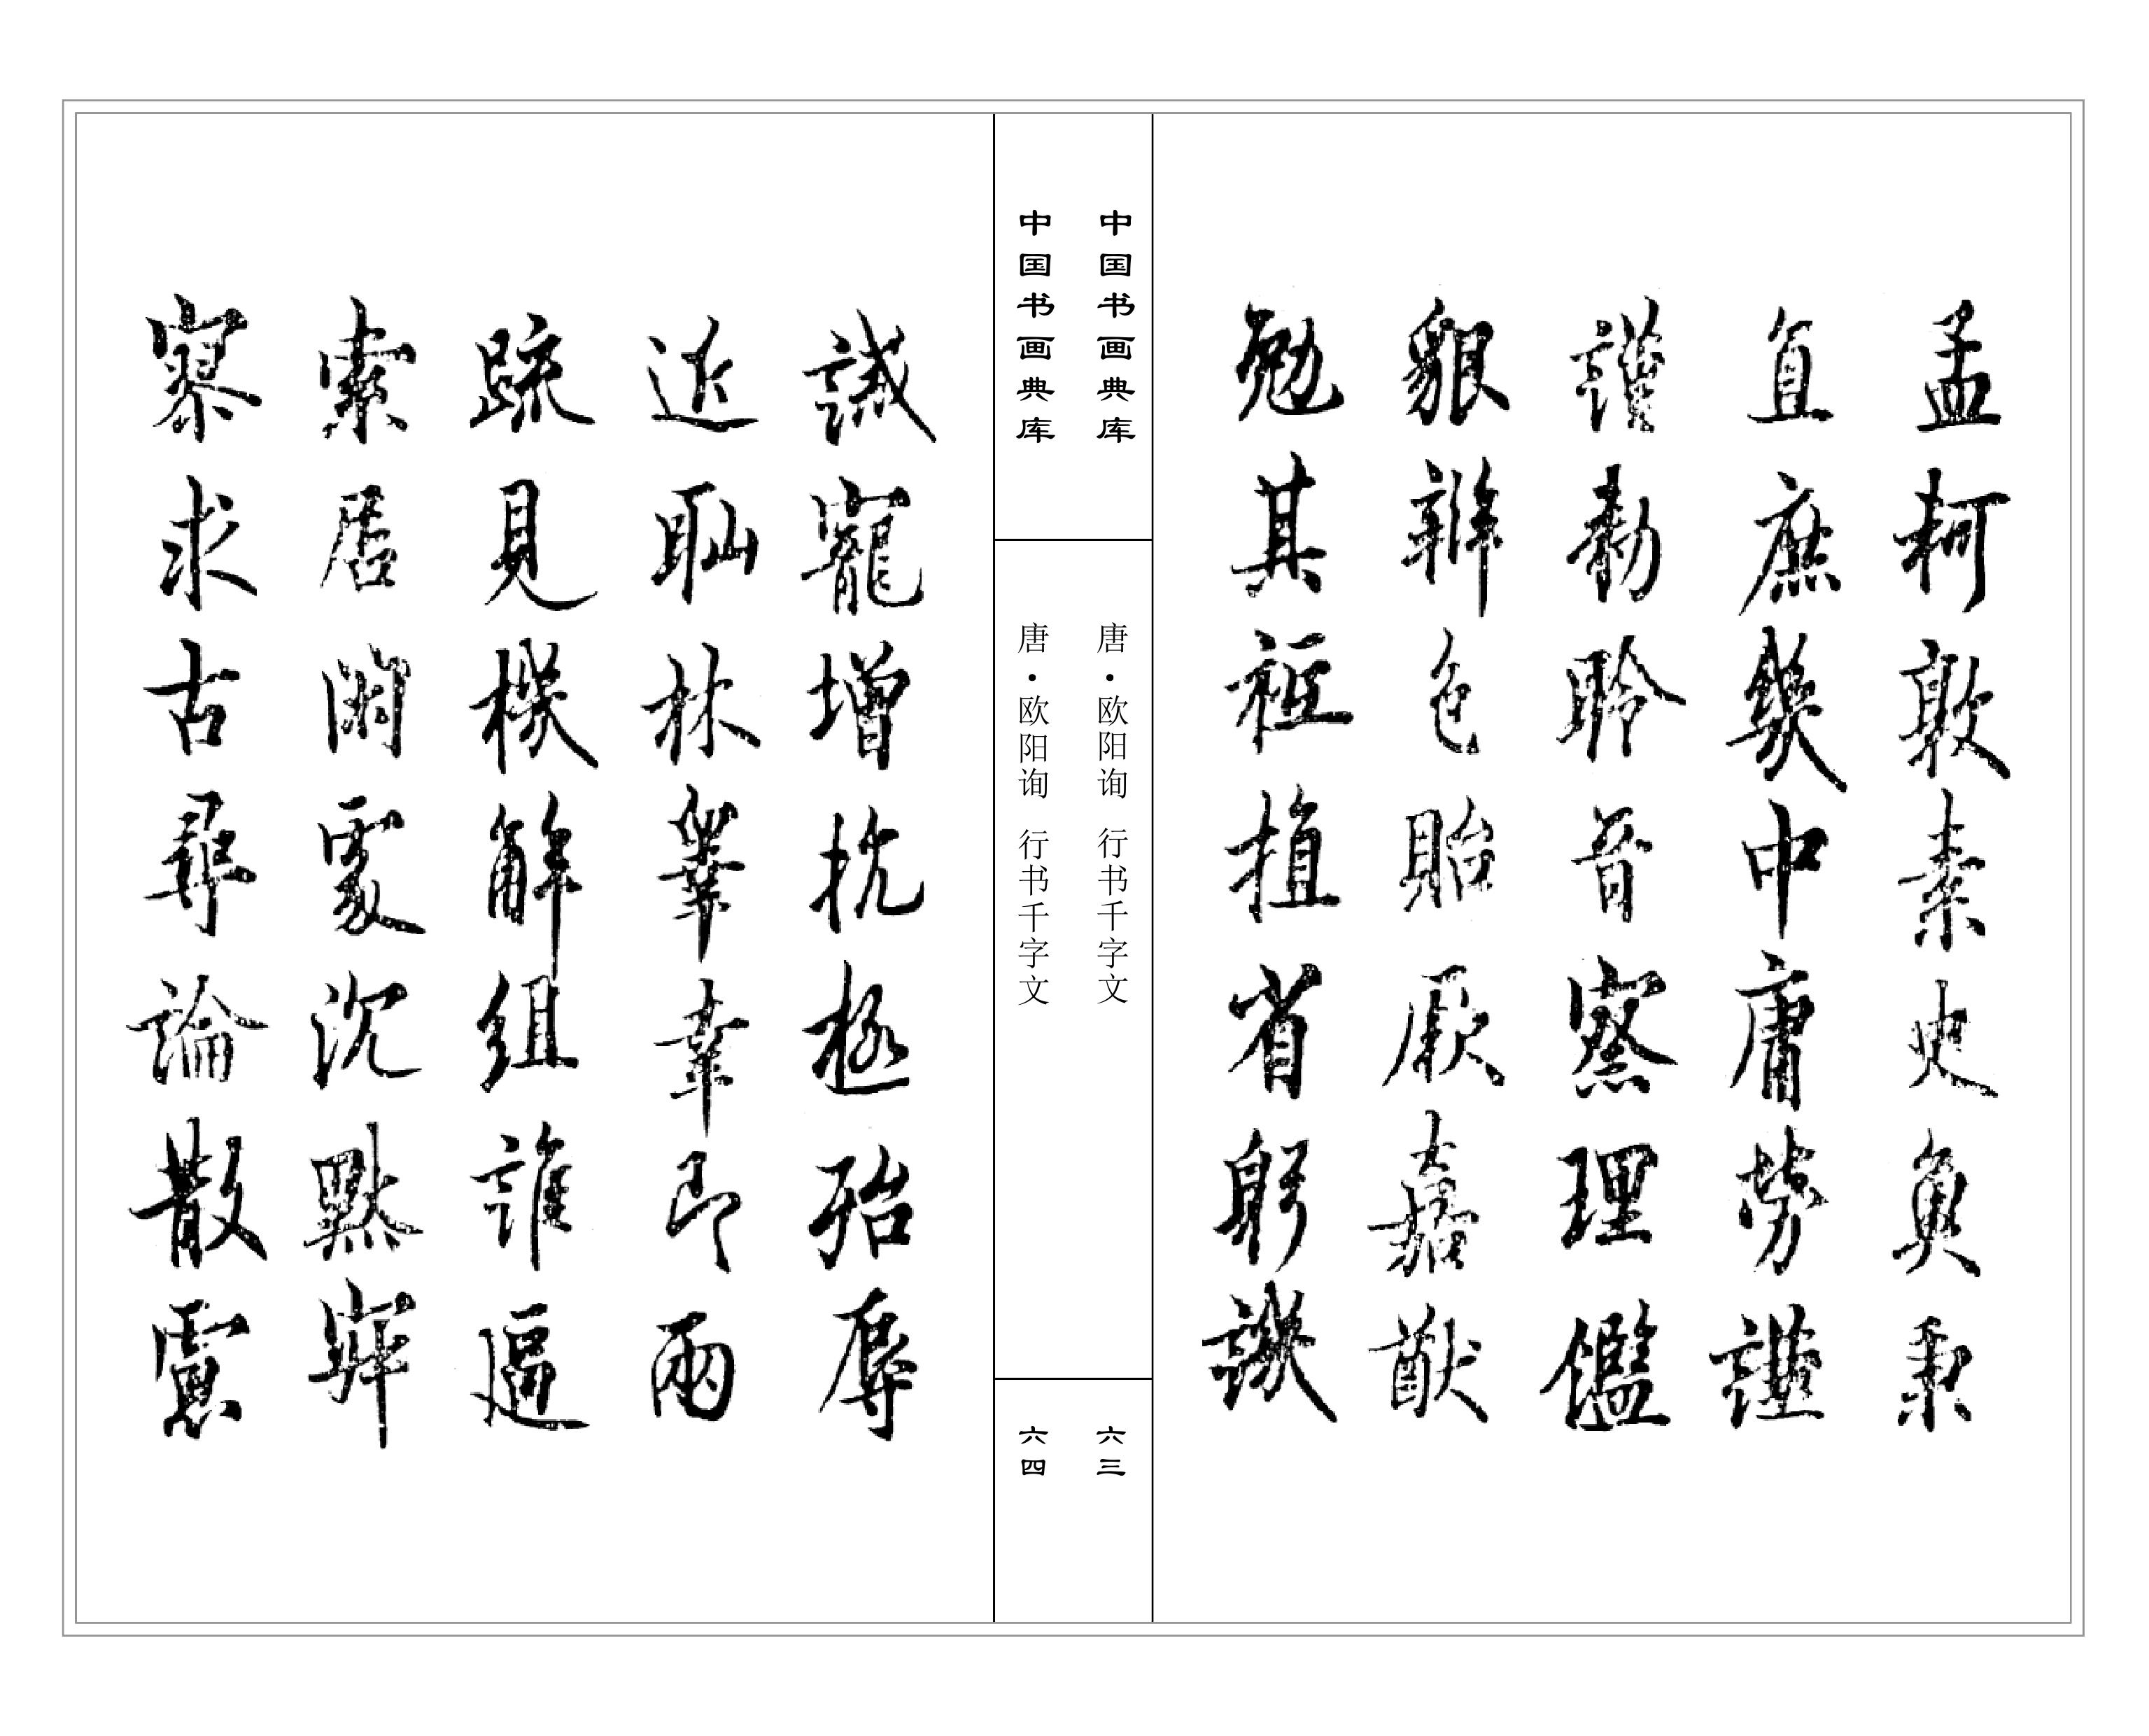 孟軻敦素史魚秉
直庶幾中庸勞謹
謹勑聆音察理鑑
貌辨色貽厥嘉猷
勉其祗植省躬譏
中国书画典库
唐·欧阳询 行书千字文
六三
中国书画典库
唐·欧阳询 行书千字文
六四
誡寵增抗極殆辱
近恥林睾幸即兩
疏見機解組誰逼
索居閑處沉默寂
寥求古尋論散慮